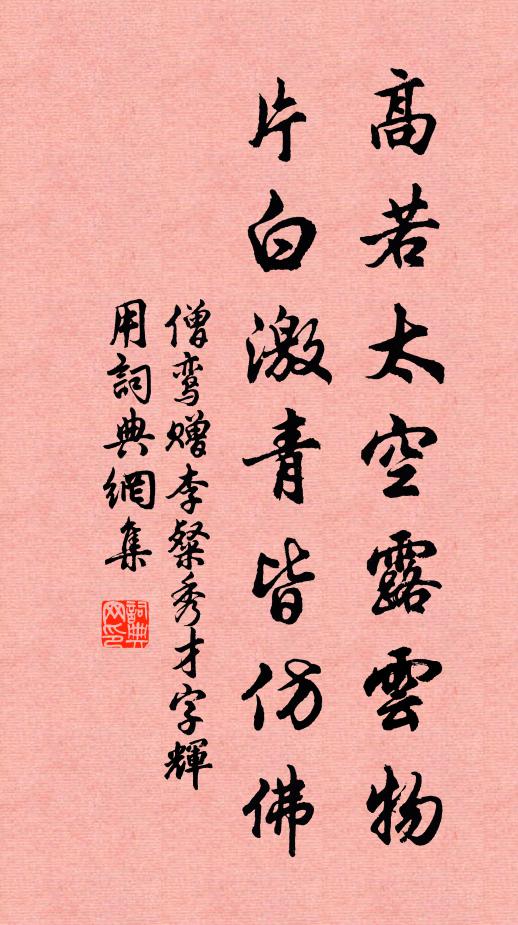 高若太空露雲物
片白激青皆仿佛
僧鸾赠李粲秀才字輝
用詞典網集
詞典网印